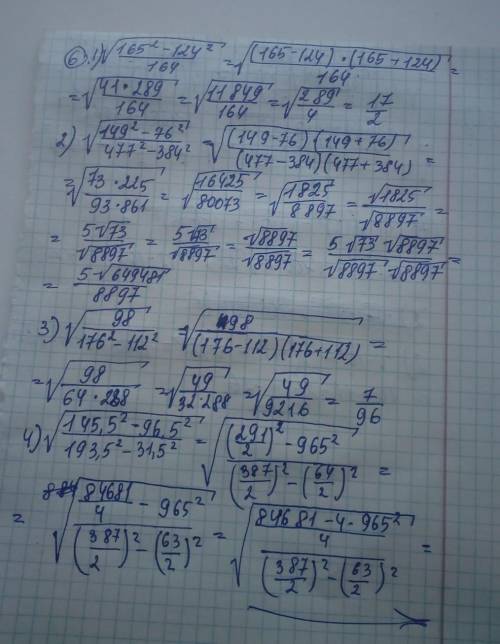 6. 1) √((165² - 124²)/164) = √(((165-124)·(165+124))/164) =
= √((41·289)/164) = √(11849/164) = √(289/4) = 17/2
2) √((149² - 76²)/(477² - 384²)) = √(((149-76)(149+76))/((477-384)(477+384))) =
= √((73·225)/(93·861)) = √(16425/80073) = √(1825/8897) = √1825/√8897 =
= 5√73/√8897 = 5√73/√8897 = √8897/√8897 = (5√73 √8897)/(√8897 √8897) =
= 5√649481/8897
3) √(98/(176² - 112²)) √(98/((176-112)(176+112))) =
= √(98/(64·288)) = √(49/(32·288)) = √(49/9216) = 7/96
4) √((145,5² - 96,5²)/(193,5² - 31,5²)) = √(((291/2)² - 965²)/((387/2)² - (64/2)²)) =
= √((84681/4 - 965²)/((387/2)² - (63/2)²)) = √(((84681 - 4·965²)/4)/((387/2)² - (63/2)²)) =